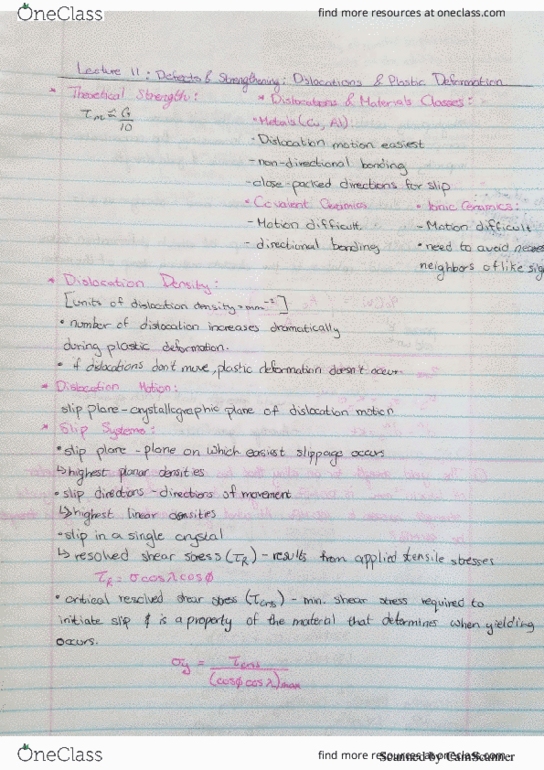 OneClass
find more resources at oneclass.com
Lecture 11: Defects & Strengthening: Dislocations & Plastic Deformation
* Theoretical Strength:
τm ≅ G/10
* Dislocations & Materials Classes:
• Metals (Cu, Al):
- Dislocation motion easiest
- non-directional bonding
- close-packed directions for slip
• Covalent Ceramics
- Motion difficult
- directional bonding
• Ionic Ceramics:
- Motion difficult
• need to avoid neares
neighbors of like sig
* Dislocation Density:
[units of dislocation density = mm⁻²]
• number of dislocation increases dramatically
during plastic deformation.
• if dislocations don't move, plastic deformation doesn't occur.
* Dislocation Motion:
slip plane - crystallographic plane of dislocation motion
* Slip Systems:
• slip plane - plane on which easiest slippage occurs
↳ highest planar densities
• slip directions - directions of movement
↳ highest linear densities
• slip in a single crystal
↳ resolved shear stress (τR) - results from applied tensile stresses
τR = σ cosλ cosϕ
• critical resolved shear stress (τcrss) - min. shear stress required to
initiate slip & is a property of the material that determines when yielding
occurs.
σy = τcrss/(cosϕ cosλ)max
OneClass
find more resources at oneclass.com
Scanned by CamScanner